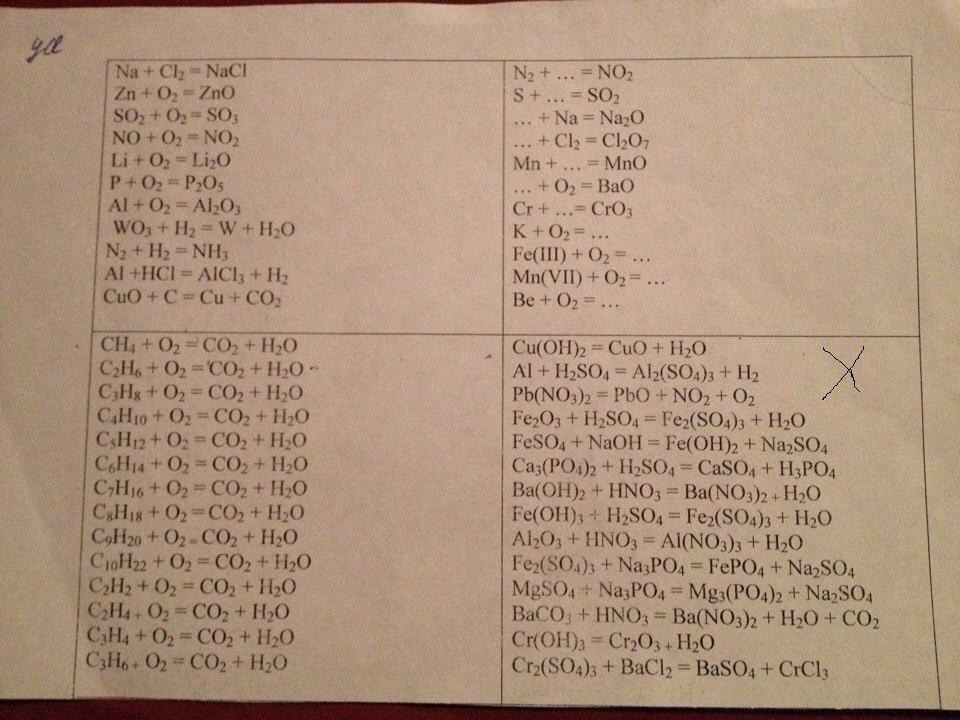 Na + Cl₂ = NaCl
Zn + O₂ = ZnO
SO₂ + O₂ = SO₃
NO + O₂ = NO₂
Li + O₂ = Li₂O
P + O₂ = P₂O₅
Al + O₂ = Al₂O₃
WO₃ + H₂ = W + H₂O
N₂ + H₂ = NH₃
Al +HCl = AlCl₃ + H₂
CuO + C = Cu + CO₂
N₂ + … = NO₂
S + … = SO₂
… + Na = Na₂O
… + Cl₂ = Cl₂O₇
Mn + … = MnO
… + O₂ = BaO
Cr + …= CrO₃
K + O₂ = …
Fe(III) + O₂ = …
Mn(VII) + O₂ = …
Be + O₂ = …
CH₄ + O₂ = CO₂ + H₂O
C₂H₆ + O₂ = CO₂ + H₂O
C₃H₈ + O₂ = CO₂ + H₂O
C₄H₁₀ + O₂ = CO₂ + H₂O
C₅H₁₂ + O₂ = CO₂ + H₂O
C₆H₁₄ + O₂ = CO₂ + H₂O
C₇H₁₆ + O₂ = CO₂ + H₂O
C₈H₁₈ + O₂ = CO₂ + H₂O
C₉H₂₀ + O₂ = CO₂ + H₂O
C₁₀H₂₂ + O₂ = CO₂ + H₂O
C₂H₂ + O₂ = CO₂ + H₂O
C₂H₄ + O₂ = CO₂ + H₂O
C₃H₄ + O₂ = CO₂ + H₂O
C₃H₆ + O₂ = CO₂ + H₂O
Cu(OH)₂ = CuO + H₂O
Al + H₂SO₄ = Al₂(SO₄)₃ + H₂
Pb(NO₃)₂ = PbO + NO₂ + O₂
Fe₂O₃ + H₂SO₄ = Fe₂(SO₄)₃ + H₂O
FeSO₄ + NaOH = Fe(OH)₂ + Na₂SO₄
Ca₃(PO₄)₂ + H₂SO₄ = CaSO₄ + H₃PO₄
Ba(OH)₂ + HNO₃ = Ba(NO₃)₂ + H₂O
Fe(OH)₃ + H₂SO₄ = Fe₂(SO₄)₃ + H₂O
Al₂O₃ + HNO₃ = Al(NO₃)₃ + H₂O
Fe₂(SO₄)₃ + Na₃PO₄ = FePO₄ + Na₂SO₄
MgSO₄ + Na₃PO₄ = Mg₃(PO₄)₂ + Na₂SO₄
BaCO₃ + HNO₃ = Ba(NO₃)₂ + H₂O + CO₂
Cr(OH)₃ = Cr₂O₃ + H₂O
Cr₂(SO₄)₃ + BaCl₂ = BaSO₄ + CrCl₃